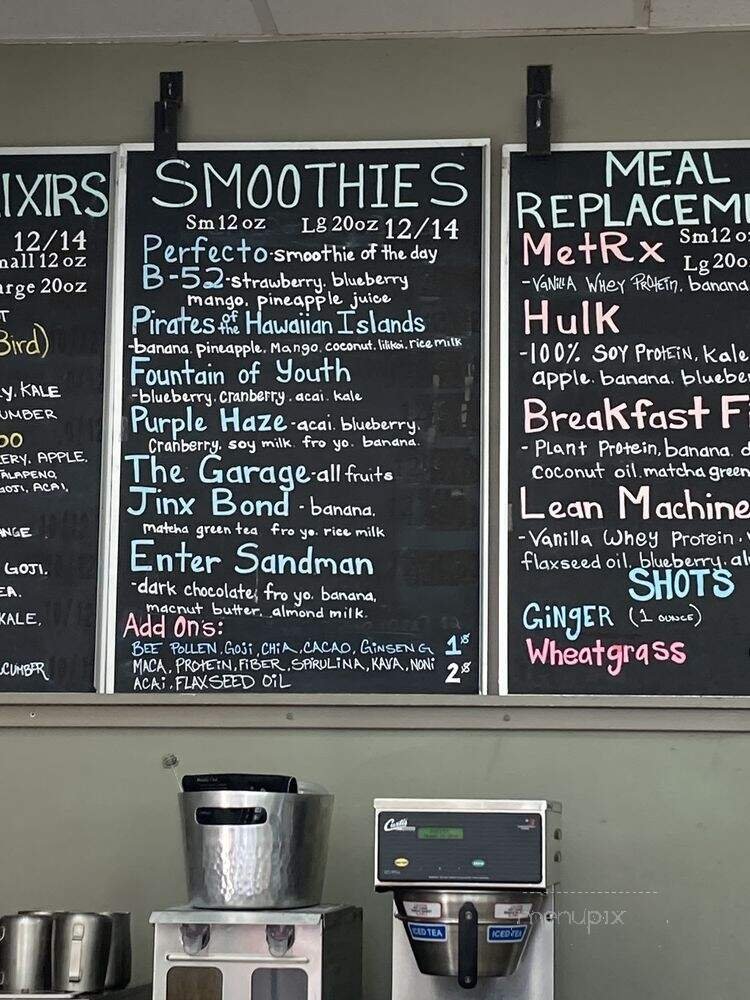 IXIRS
12/14
nall 12 oz
arge 20oz
Bird)
Y, KALE
UMBER
OO
ERY, APPLE,
ALAPENO,
GOJI, ACAI,
NGE
GOJI,
EA.
KALE,
CUMBER
SMOOTHIES
Sm 12 oz Lg 20oz 12/14
Perfecto-smoothie of the day
B-52-strawberry, blueberry
mango, pineapple juice
Pirates of the Hawaiian Islands
-banana, pineapple, Mango, coconut, lilikoi, rice milk
Fountain of Youth
-blueberry, cranberry, acai, kale
Purple Haze-acai, blueberry,
Cranberry, soy milk, fro yo, banana.
The Garage-all fruits
Jinx Bond - banana,
matcha green tea fro yo, rice milk
Enter Sandman
-dark chocolate, fro yo, banana,
macnut butter, almond milk.
Add On's:
BEE POLLEN, GOJI, CHIA, CACAO, GINSENG 1
MACA, PROTEIN, FIBER, SPIRULINA, KAVA, NONI 2
ACAI, FLAXSEED OIL
MEAL
REPLACEM
MetRx Sm12 o
Lg 20o
-Vanilla Whey Protein, banana
Hulk
-100% SOY PROTEIN, Kale
apple, banana, blueber
Breakfast F
- Plant Protein, banana,
coconut oil, matcha green
Lean Machine
-Vanilla Whey Protein,
flaxseed oil, blueberry, al
SHOTS
GINGER (1 OUNCE)
Wheatgrass
Curtis
ICED TEA
ICED TEA
menupix